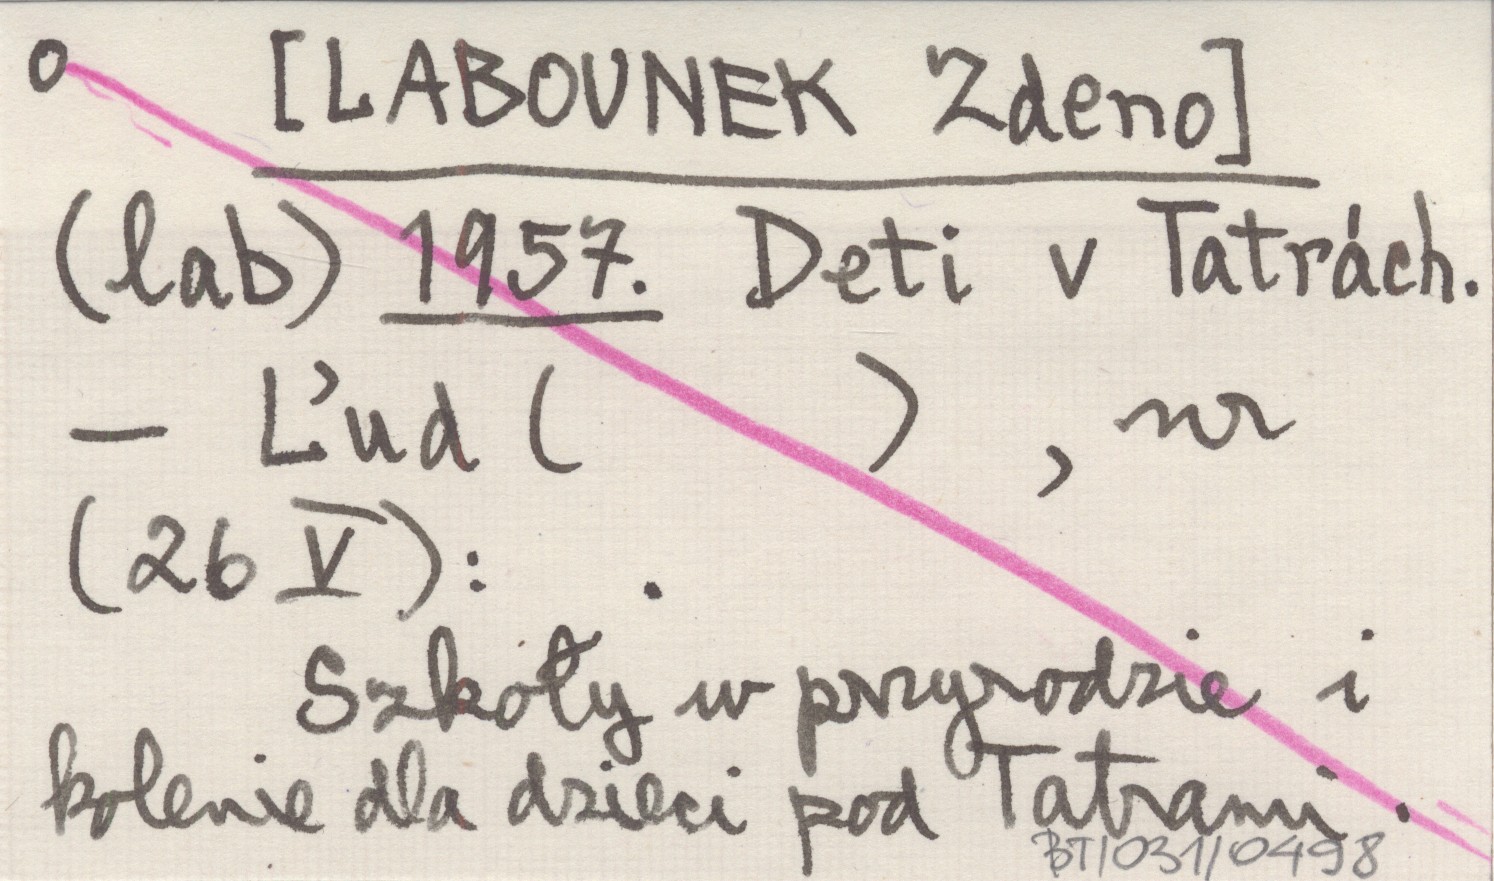 o [LABOUNEK Zdeno]
(lab) 1957. Deti v Tatrách.
– Ľud ( ) , nr
(26 V): .
Szkoły w przyrodzie i
kolenie dla dzieci pod Tatrami.
BT/031/0498